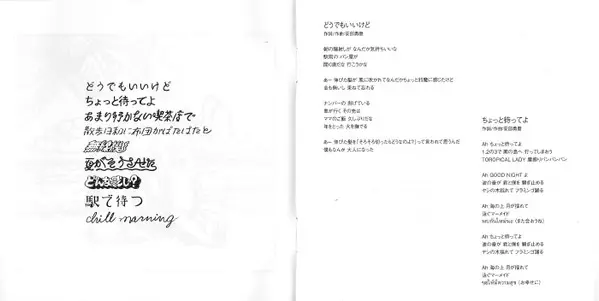 どうでもいいけど
ちょっと待ってよ
あまり行かない喫茶店で
散歩日和に布団がぱたぱたと
無判残
夏がそうさせた
どんな感じ?
駅で待つ
chill morning
どうでもいいけど
朝の陽射しが なんだか気持ちいいな
駅前の パン屋が
あー 伸びた髪が 風に吹かれてなんだかちょっと邪魔に感じたけど
金も無いし 束ねて忘れる
ナンバーの 剥げている
車が行く その先は
ママのご飯 久しぶりだな
年をとった 犬を撫でる
あー 伸びた髪を「そろそろ切ったらどうなのよ?」って言われて思うんだ
僕もなんか 大人になった
ちょっと待ってよ
Ah ちょっと待ってよ
1,2の3で 南の島へ 行ってしまおう
TOROPICAL LADY 腰振りパンパンパン
Ah GOOD NIGHT よ
波の音が 君と僕を 騒ぎ止める
ヤシの木揺れて フラミンゴ踊る
Ah 海の上 月が揺れて
泳ぐマーメイド
(また会おうね)
Ah ちょっと待ってよ
波の音が 君と僕を 騒ぎ止める
ヤシの木揺れて フラミンゴ踊る
Ah 海の上 月が揺れて
泳ぐマーメイド
(お幸せに)